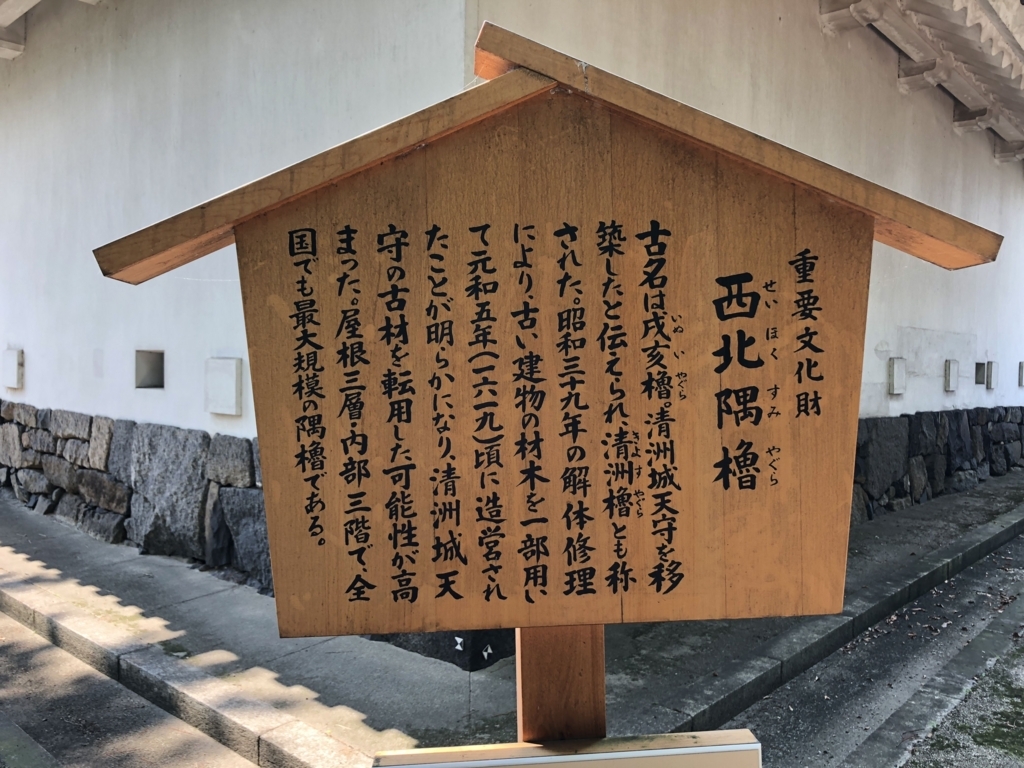 重要文化財
西北隅櫓
せいほくすみやぐら
古名は戌亥櫓。清洲城天守を移
いぬいやぐら
築したと伝えられ、清洲櫓とも称
きよすやぐら
された。昭和三十九年の解体修理
により、古い建物の材木を一部用い
て元和五年(一六一九)頃に造営され
たことが明らかになり、清洲城天
守の古材を転用した可能性が高
まった。屋根三層・内部三階で、全
国でも最大規模の隅櫓である。